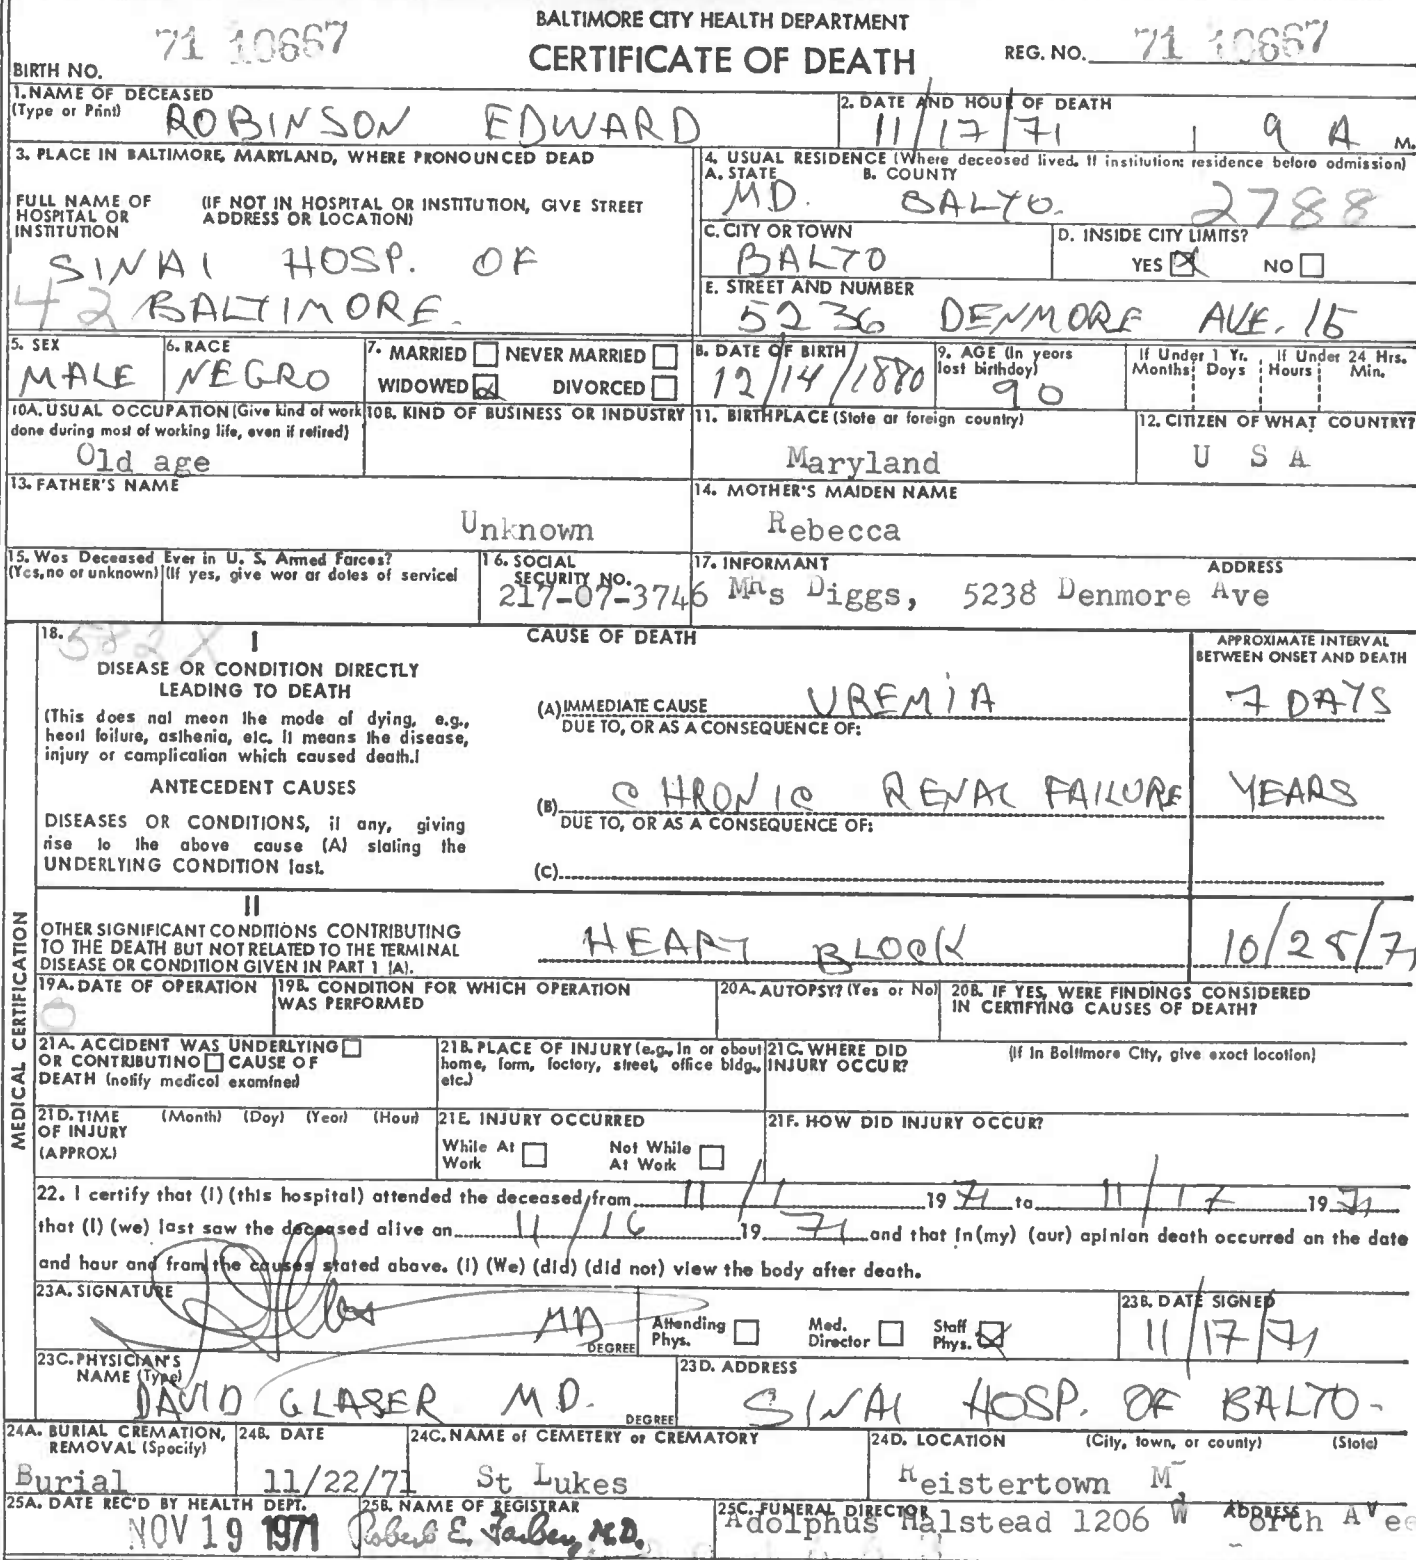 BALTIMORE CITY HEALTH DEPARTMENT
CERTIFICATE OF DEATH
71 10667
REG. NO. 71 10667
BIRTH NO.
1. NAME OF DECEASED
(Type or Print)
ROBINSON EDWARD
2. DATE AND HOUR OF DEATH
11/17/71 9 A M.
3. PLACE IN BALTIMORE, MARYLAND, WHERE PRONOUNCED DEAD
FULL NAME OF HOSPITAL OR INSTITUTION
(IF NOT IN HOSPITAL OR INSTITUTION, GIVE STREET ADDRESS OR LOCATION)
SINAI HOSP. OF
42 BALTIMORE.
4. USUAL RESIDENCE (Where deceased lived. If institution: residence before admission)
A. STATE B. COUNTY
MD. BALTO. 2788
C. CITY OR TOWN
BALTO
D. INSIDE CITY LIMITS?
YES NO
E. STREET AND NUMBER
5236 DENMORE AVE. 15
5. SEX
MALE
6. RACE
NEGRO
7. MARRIED NEVER MARRIED
WIDOWED DIVORCED
8. DATE OF BIRTH
12/14/1880
9. AGE (In years last birthday)
90
If Under 1 Yr. Months Days
If Under 24 Hrs. Hours Min.
10A. USUAL OCCUPATION (Give kind of work done during most of working life, even if retired)
Old age
10B. KIND OF BUSINESS OR INDUSTRY
11. BIRTHPLACE (State or foreign country)
Maryland
12. CITIZEN OF WHAT COUNTRY?
U S A
13. FATHER'S NAME
Unknown
14. MOTHER'S MAIDEN NAME
Rebecca
15. Was Deceased Ever in U. S. Armed Forces?
(Yes, no or unknown) (If yes, give war or dates of service)
16. SOCIAL SECURITY NO.
217-07-3746
17. INFORMANT ADDRESS
Mrs Diggs, 5238 Denmore Ave
MEDICAL CERTIFICATION
18. 582X
I
DISEASE OR CONDITION DIRECTLY
LEADING TO DEATH
(This does not mean the mode of dying, e.g.,
heart failure, asthenia, etc. It means the disease,
injury or complication which caused death.)
ANTECEDENT CAUSES
DISEASES OR CONDITIONS, if any, giving
rise to the above cause (A) stating the
UNDERLYING CONDITION last.
CAUSE OF DEATH
APPROXIMATE INTERVAL
BETWEEN ONSET AND DEATH
(A) IMMEDIATE CAUSE UREMIA 7 DAYS
DUE TO, OR AS A CONSEQUENCE OF:
(B) CHRONIC RENAL FAILURE YEARS
DUE TO, OR AS A CONSEQUENCE OF:
(C)
II
OTHER SIGNIFICANT CONDITIONS CONTRIBUTING
TO THE DEATH BUT NOT RELATED TO THE TERMINAL
DISEASE OR CONDITION GIVEN IN PART 1 (A).
HEART BLOCK 10/28/71
19A. DATE OF OPERATION
0
19B. CONDITION FOR WHICH OPERATION WAS PERFORMED
20A. AUTOPSY? (Yes or No)
20B. IF YES, WERE FINDINGS CONSIDERED IN CERTIFYING CAUSES OF DEATH?
21A. ACCIDENT WAS UNDERLYING
OR CONTRIBUTING CAUSE OF
DEATH (notify medical examiner)
21B. PLACE OF INJURY (e.g., in or about home, farm, factory, street, office bldg., etc.)
21C. WHERE DID INJURY OCCUR?
(If in Baltimore City, give exact location)
21D. TIME OF INJURY (APPROX.)
(Month) (Day) (Year) (Hour)
21E. INJURY OCCURRED
While At Work Not While At Work
21F. HOW DID INJURY OCCUR?
22. I certify that (I) (this hospital) attended the deceased from 11/1 1971 to 11/17 1971
that (I) (we) last saw the deceased alive on 11/16 1971 and that in (my) (our) opinion death occurred on the date
and hour and from the causes stated above. (I) (We) (did) (did not) view the body after death.
23A. SIGNATURE
MD
DEGREE
Attending Phys. Med. Director Staff Phys.
23B. DATE SIGNED
11/17/71
23C. PHYSICIAN'S NAME (Type)
DAVID GLASER M.D.
DEGREE
23D. ADDRESS
SINAI HOSP. OF BALTO.
24A. BURIAL CREMATION, REMOVAL (Specify)
Burial
24B. DATE
11/22/71
24C. NAME of CEMETERY or CREMATORY
St Lukes
24D. LOCATION (City, town, or county) (State)
Reistertown M
25A. DATE REC'D BY HEALTH DEPT.
NOV 19 1971
25B. NAME OF REGISTRAR
Robert E. Farber, M.D.
25C. FUNERAL DIRECTOR ADDRESS
Adolphus Halstead 1206 W orth Ave